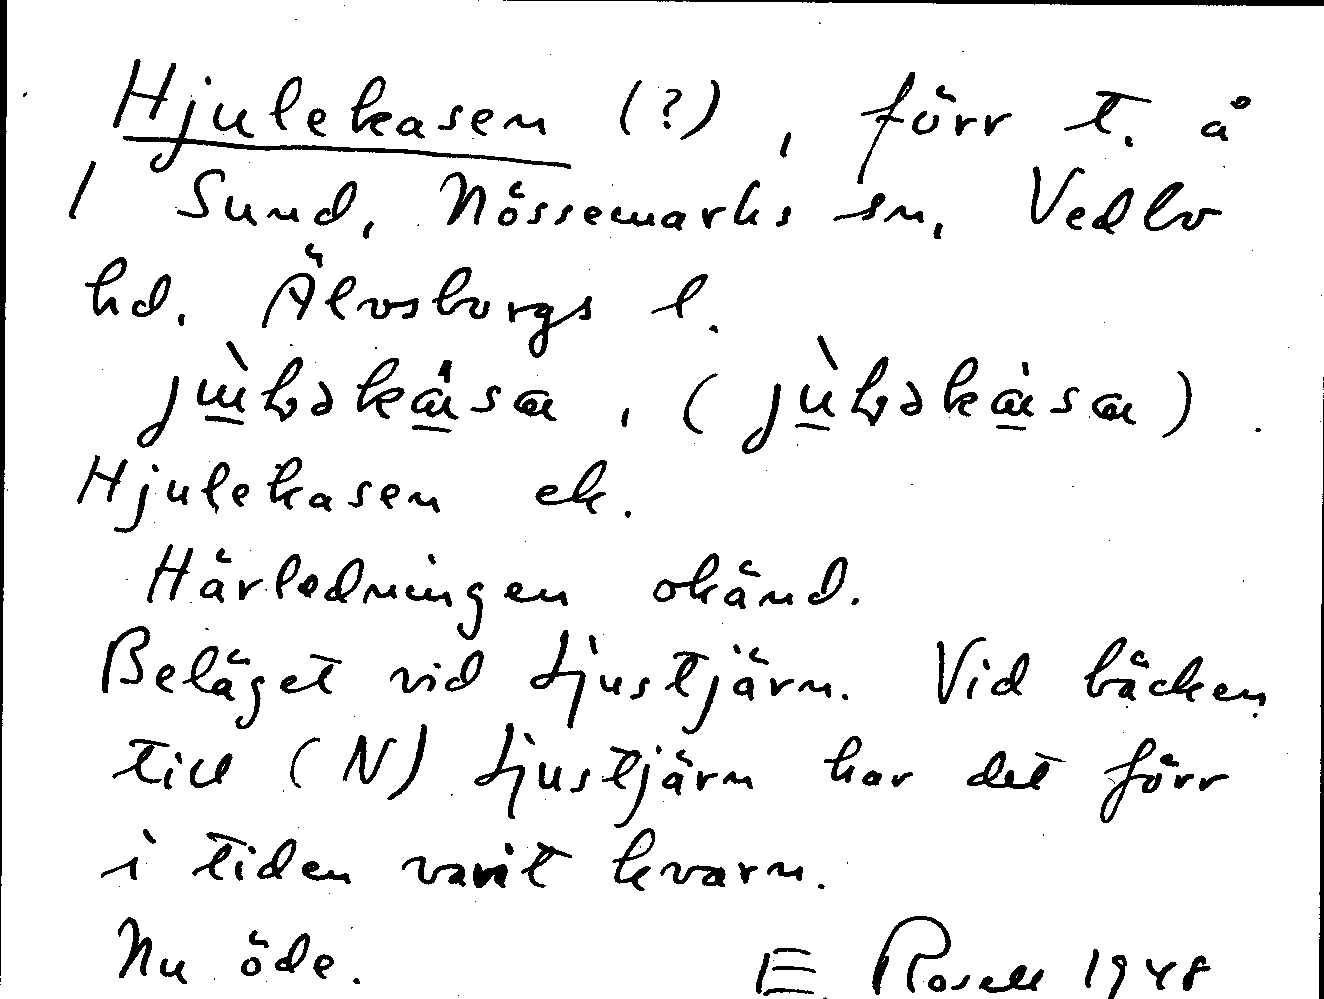 Hjulekasen (?), förr t. å
1 Sund, Nössemarks sn, Vedbo
hd. Älvsborgs l.
Hjulekasen ek.
Härledningen okänd.
Beläget vid Ljustjärn. Vid bäcken
till (N) Ljustjärn har det förr
i tiden varit kvarn.
Nu öde. E Rosell 1948